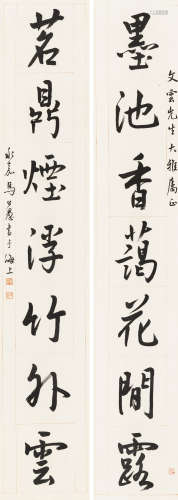 文雲先生大雅屬正
墨池香藹花間露
茗鼎煙浮竹外雲
永嘉馬公愚書于海上